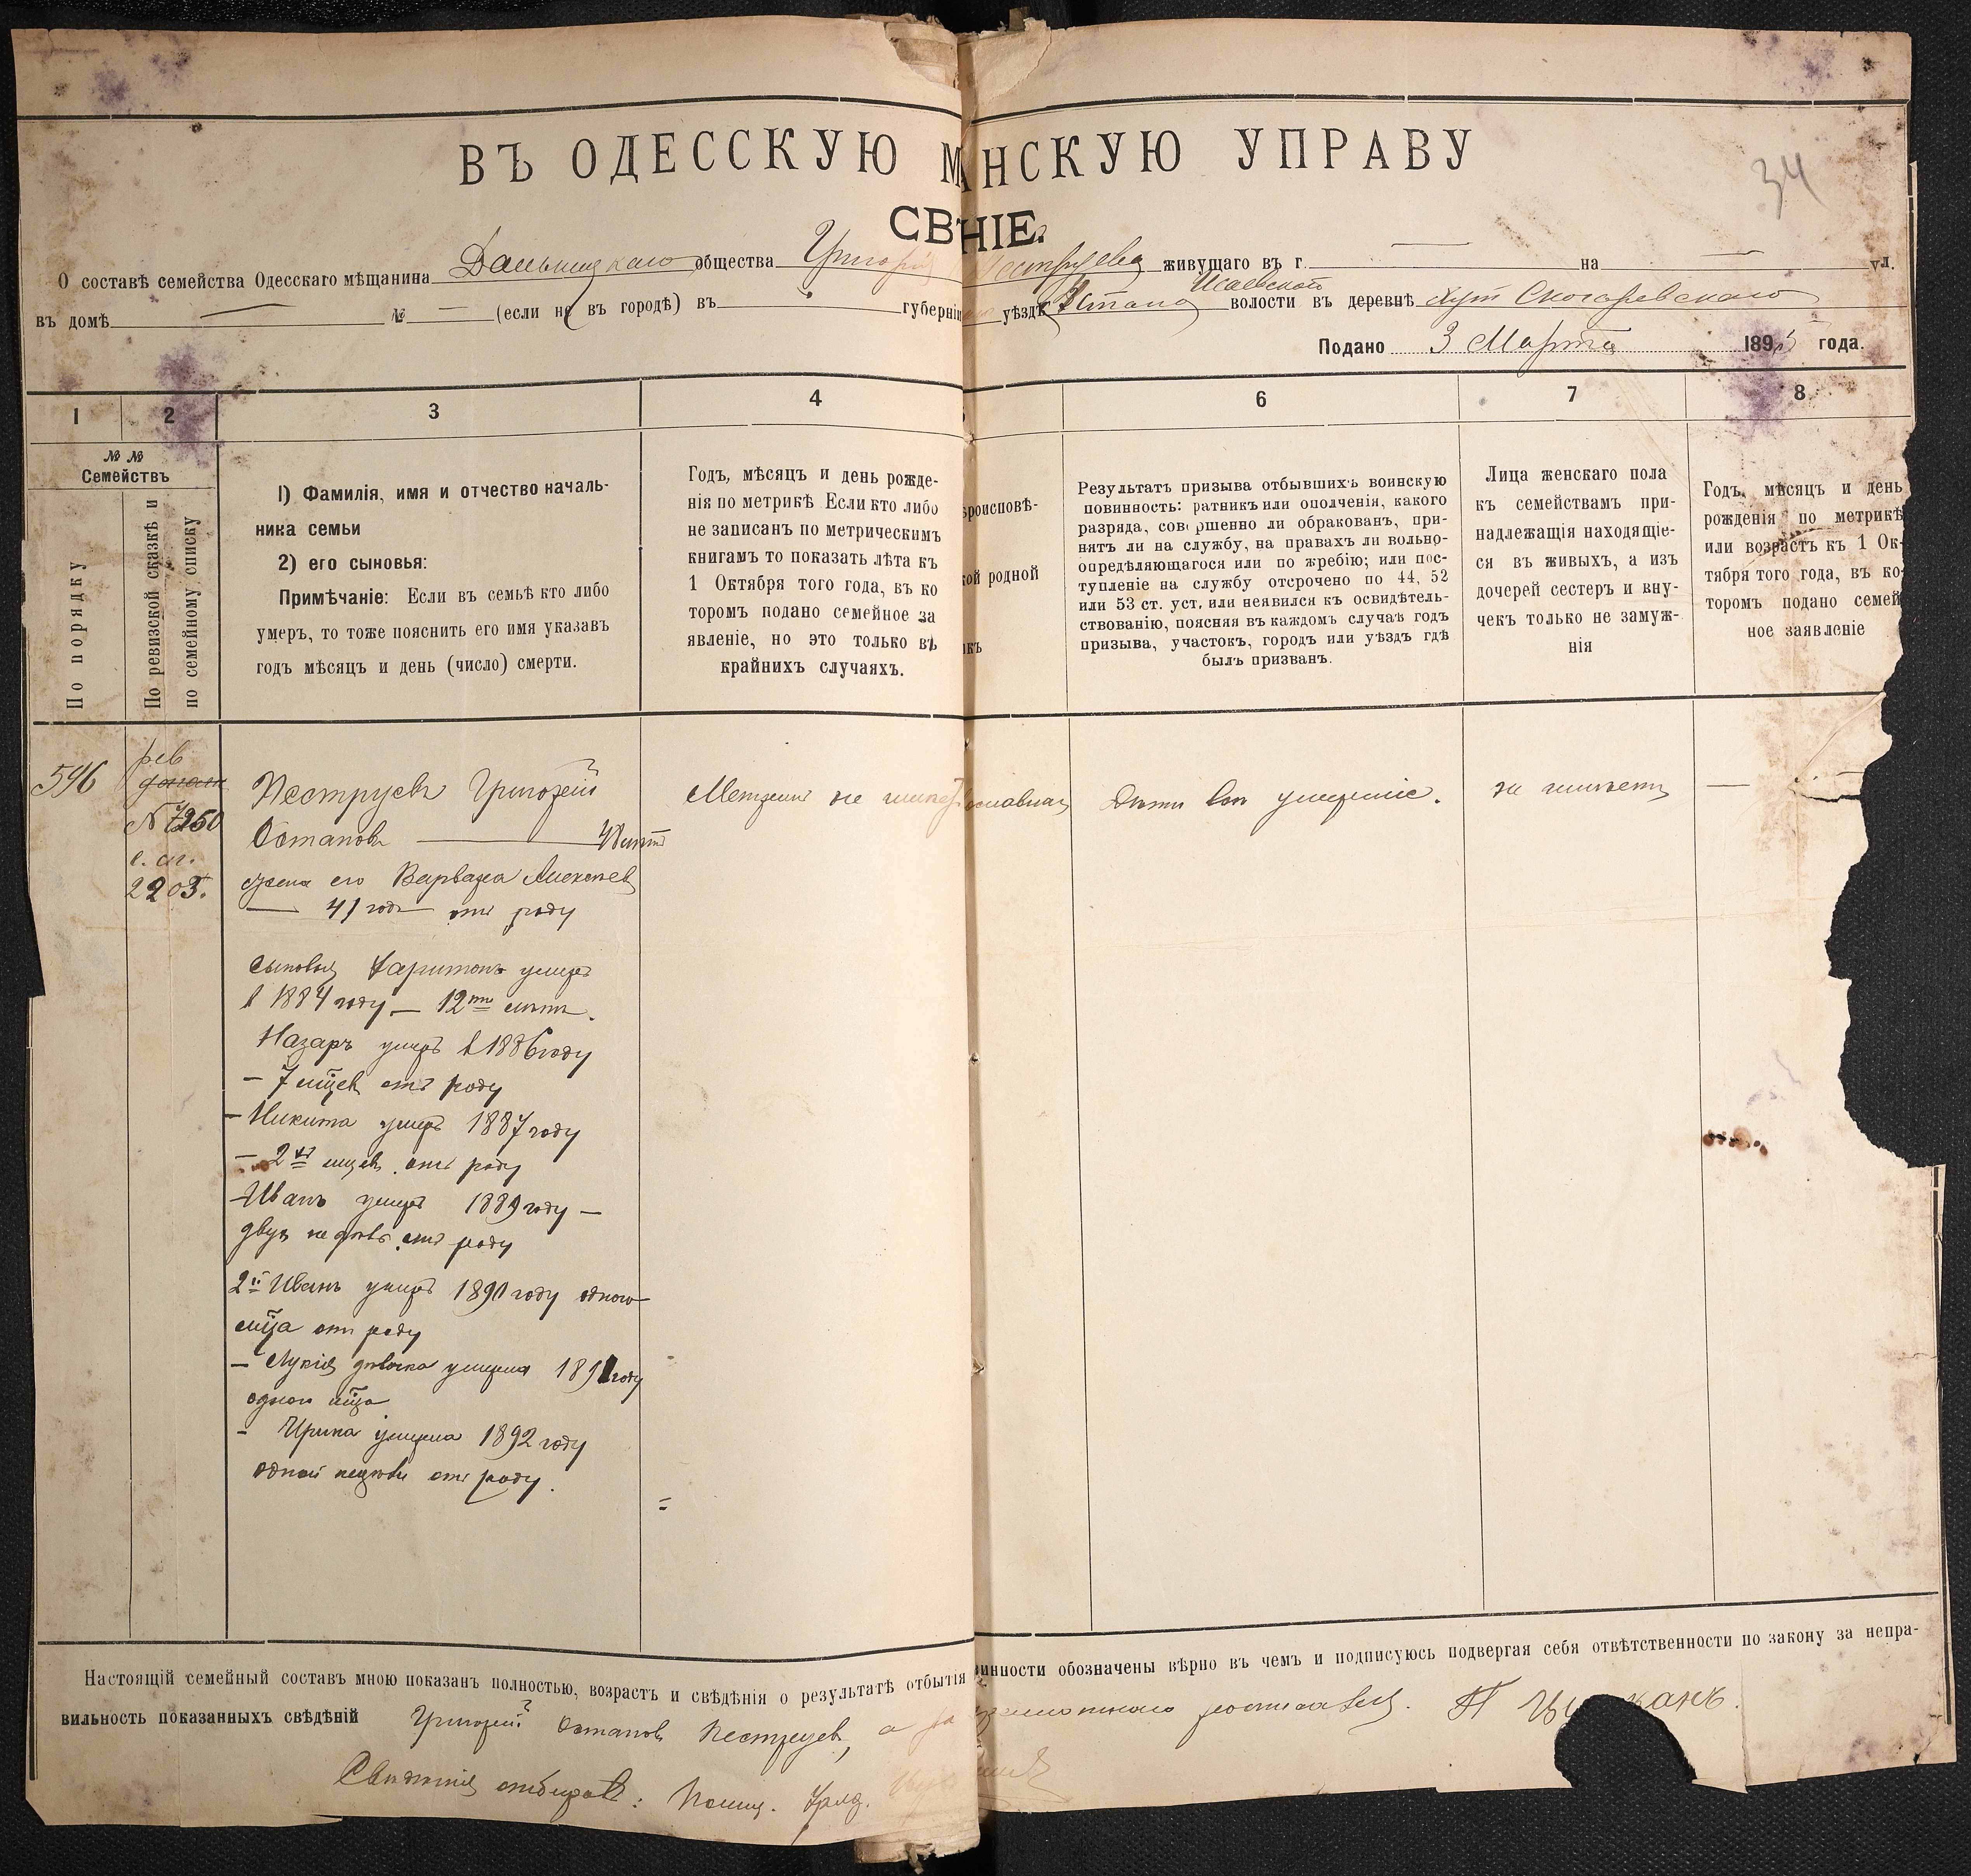 34
ВЪ ОДЕССКУЮ М НСКУЮ УПРАВУ
СВ НІЕ.
О составѣ семейства Одесскаго мѣщанина Дальницкаго общества Григорій Пеструева живущаго въ г. — на — ул.
въ домѣ — № — (если не въ городѣ) въ губерніи уѣздѣ Исаевской волости въ деревнѣ хут Скосаревскаго
Подано 3 Марта 1895 года.
1 2 3 4 6 7 8
№ № Семействъ
По порядку
По ревизской сказкѣ и
по семейному списку
1) Фамилія, имя и отчество началь-
ника семьи
2) его сыновья:
Примѣчаніе: Если въ семьѣ кто либо
умеръ, то тоже пояснить его имя указавъ
годъ мѣсяцъ и день (число) смерти.
Годъ, мѣсяцъ и день рожде-
нія по метрикѣ Если кто либо
не записанъ по метрическимъ
книгамъ то показать лѣта къ
1 Октября того года, въ ко
торомъ подано семейное за
явленіе, но это только въ
крайнихъ случаяхъ.
ѣроисповѣ-
кой родной
икъ
Результатъ призыва отбывшихъ воинскую
повинность: ратникъ или ополченія, какого
разряда, совершенно ли обракованъ, при-
нятъ ли на службу, на правахъ ли вольно-
опредѣляющагося или по жребію; или пос-
тупленіе на службу отсрочено по 44, 52
или 53 ст. уст. или неявился къ освидѣтель-
ствованію, поясняя въ каждомъ случаѣ годъ
призыва, участокъ, городъ или уѣздъ гдѣ
былъ призванъ.
Лица женскаго пола
къ семействамъ при-
надлежащія находящіе-
ся въ живыхъ, а изъ
дочерей сестеръ и вну-
чекъ только не замуж-
нія
Годъ, мѣсяцъ и день
рожденія по метрикѣ
или возрастъ къ 1 Ок-
тября того года, въ ко-
торомъ подано семей
ное заявленіе
546
рев
№ 7260
с. сп.
2203.
Пеструевъ Григорій
Остаповъ — лѣтъ
жена его Варвара Алексѣев
— 41 годъ отъ роду
Сыновья Харитонъ умеръ
в 1884 году — 12ти лѣтъ.
Назаръ умеръ в 1886 году
— 7 мцев отъ роду
— Никита умеръ 1887 году
— 2хъ мцев отъ роду
— Иванъ умеръ 1889 году —
двух недѣль отъ роду
2й Иванъ умеръ 1890 году одного
мца отъ роду
— Лукія дѣвочка умерла 1891 году
одного мца
— Ирина умерла 1892 году
одной недѣли отъ роду.
Метрики не имѣет
ославная
Дѣти всѣ умершіе.
не имѣетъ
—
Настоящій семейный составъ мною показанъ полностью, возрастъ и свѣдѣнія о результатѣ отбытія
инности обозначены вѣрно въ чемъ и подписуюсь подвергая себя отвѣтственности по закону за непра-
вильность показанныхъ свѣдѣній Григорій Остаповъ Пеструевъ, а за грамотнаго росписался. П
Свѣдѣнія отбиралъ: Полиц. Уряд.